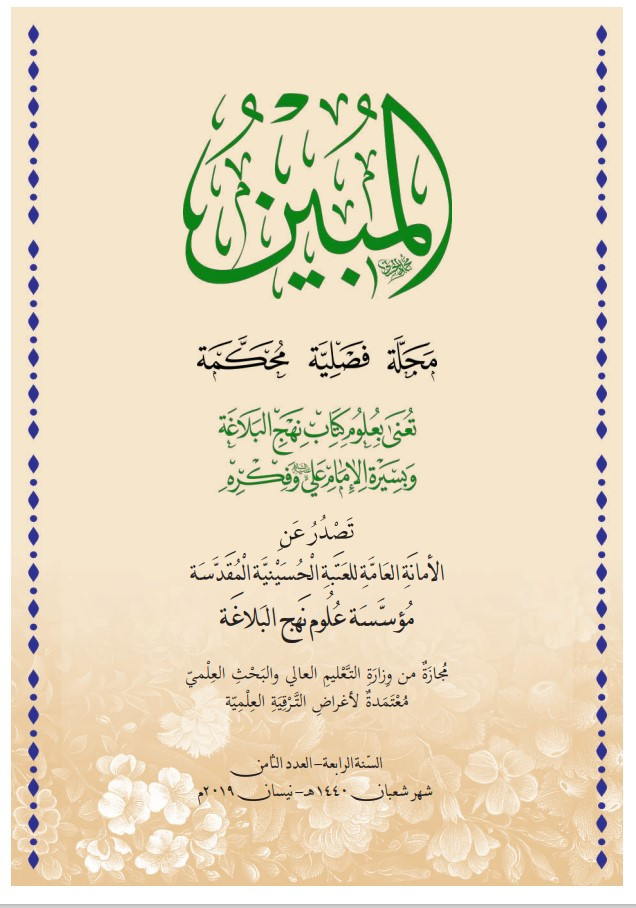 المُبين
مَجَلَّة فَصْلِيَّة مُحَكَّمَة
تُعْنَى بِعُلُومِ كِتَابِ نَهْجِ البَلَاغَة
وَبِسِيرَةِ الإِمَامِ عَلِيّ وَفِكْرِهِ
تَصْدُرُ عَنِ
الأمانَةِ العَامَّةِ للعَتَبةِ الْحُسَيْنِيَّةِ الْمُقَدَّسَة
مُؤَسَّسَة عُلُوم نَهج البَلاغَة
مُجازَةٌ من وِزارَةِ التَّعْليمِ العالي والبَحْثِ العِلْميّ
مُعْتَمَدةٌ لأغراضِ التَّرْقِيَةِ العِلْمِيّة
السّنة الرابعة-العدد الثامن
شهر شعبان ١٤٤٠هـ-نيسان ٢٠١٩م